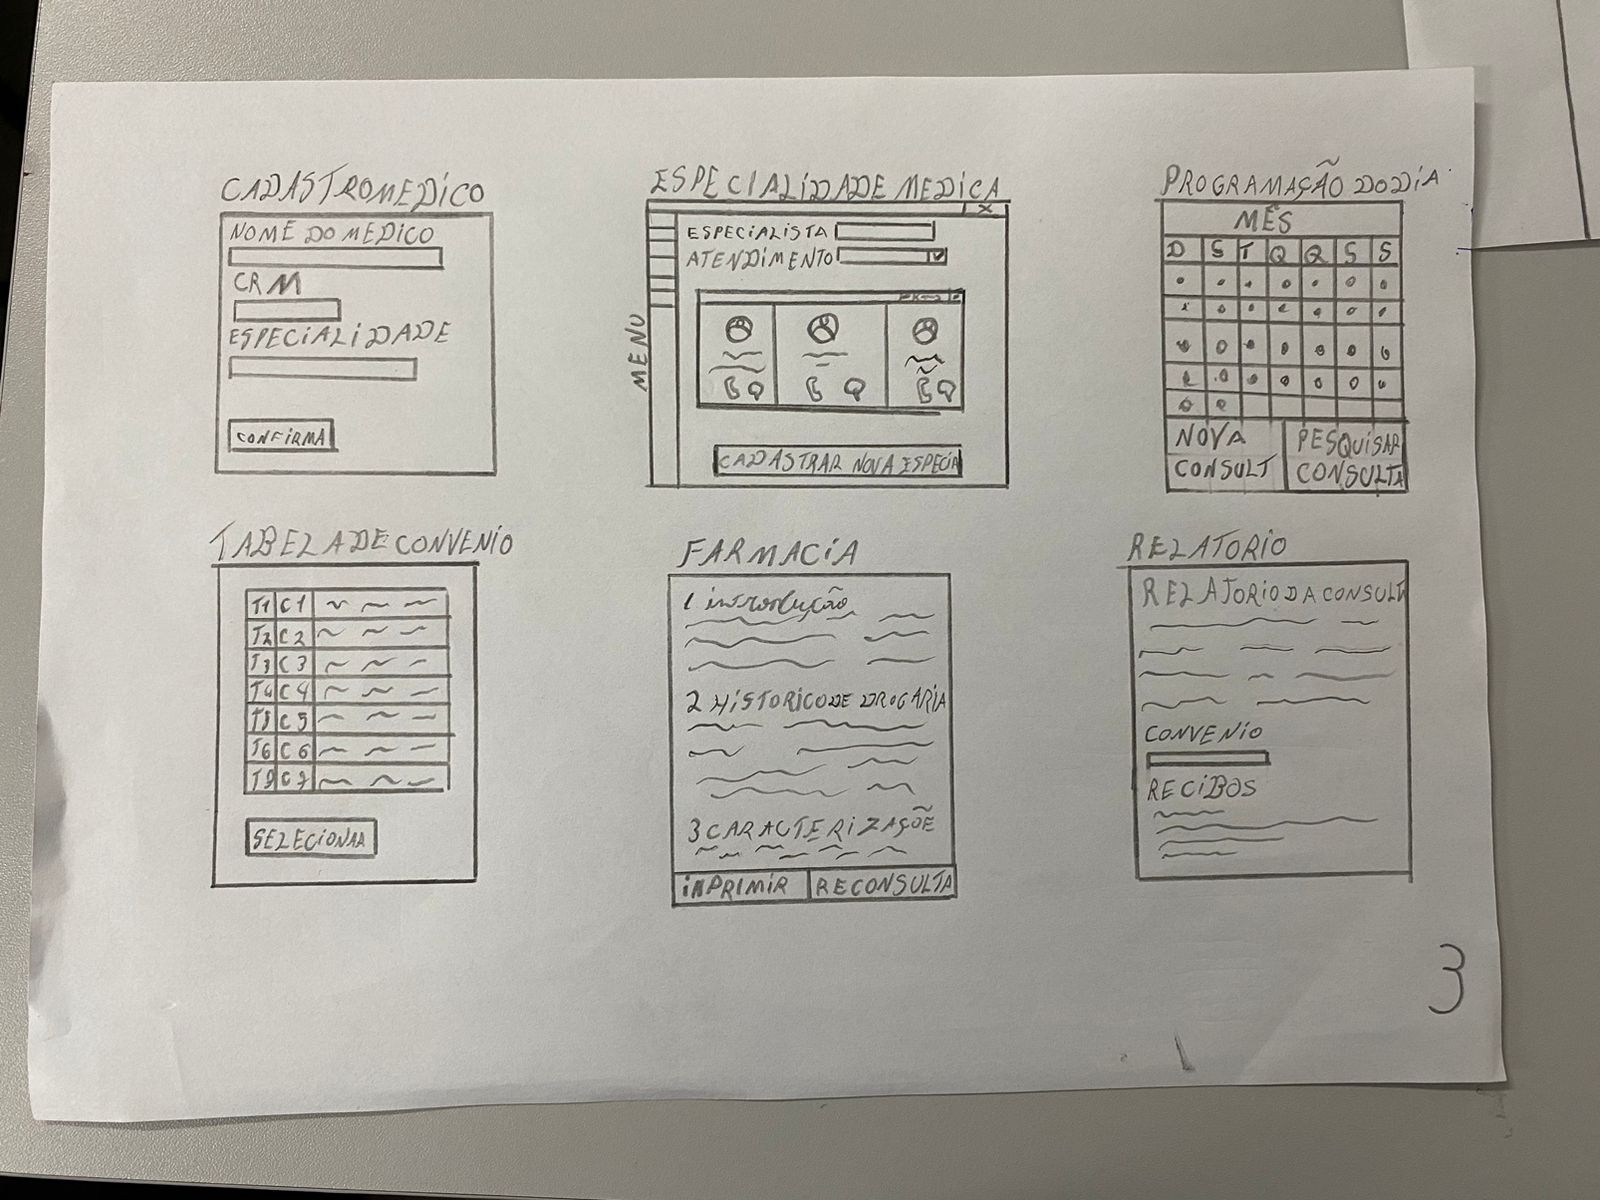 CADASTRO MEDICO
NOME DO MEDICO
CRM
ESPECIALIDADE
CONFIRMA
ESPECIALIDADE MEDICA
X
ESPECIALISTA
ATENDIMENTO
MENU
CADASTRAR NOVA ESPECIA
PROGRAMAÇÃO DO DIA
MÊS
D S T Q Q S S
NOVA CONSULT
PESQUISAR CONSULTA
TABELA DE CONVENIO
T1 C1
T2 C2
T3 C3
T4 C4
T5 C5
T6 C6
T7 C7
SELECIONAR
FARMACIA
1 introdução
2 HISTORICO DE DROGARIA
3 CARACTERIZAÇÕE
IMPRIMIR
RECONSULTA
RELATORIO
RELATORIO DA CONSULT
CONVENIO
RECIBOS
3